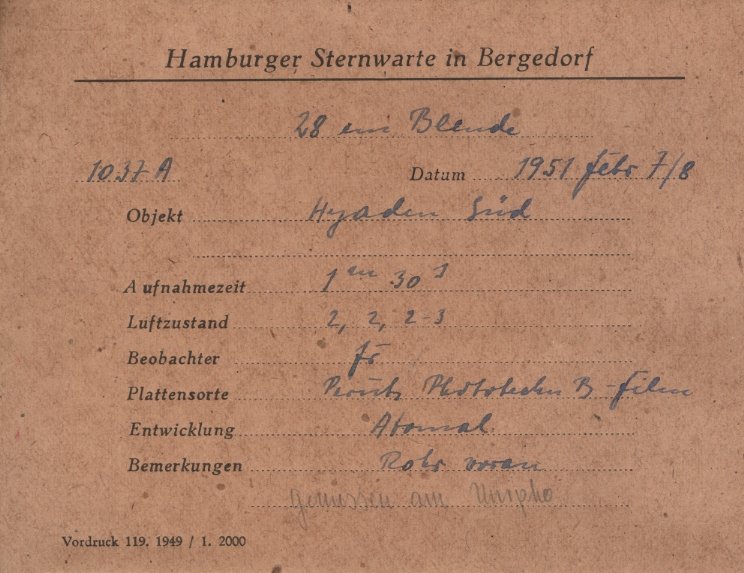 Hamburger Sternwarte in Bergedorf
28 cm Blende
1037 A Datum 1951 Febr 7/8
Objekt Hyaden Süd
Aufnahmezeit 1 m 30 s
Luftzustand 2, 2, 2-3
Beobachter
Plattensorte Perutz Phototechn B-Film
Entwicklung Atomal
Bemerkungen Rohr voran
Gemessen am
Vordruck 119. 1949 / 1. 2000